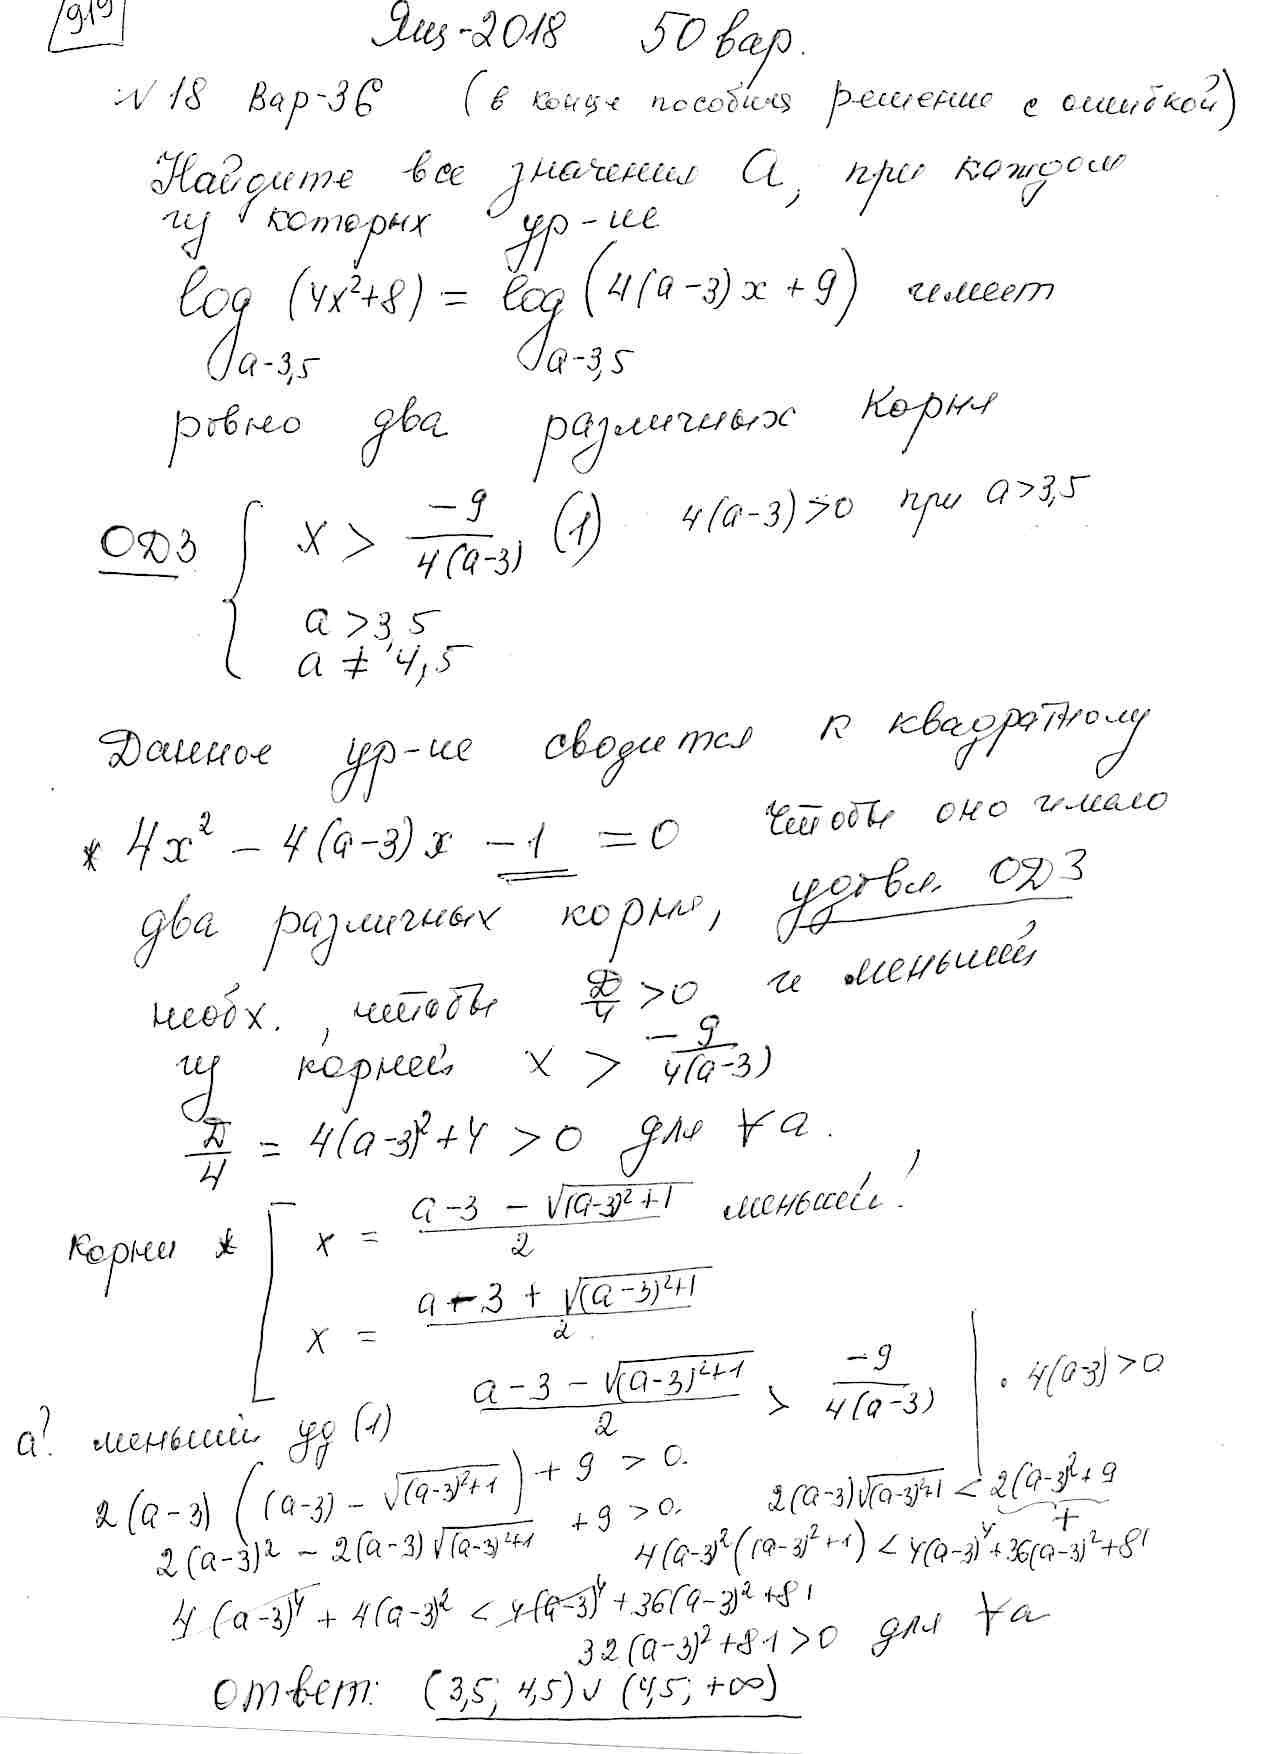 919
Ящ-2018 50 вар.
N 18 Вар-36 (в конце пособия решение с ошибкой)
Найдите все значения a, при каждом
из которых ур-ие
log_{a-3,5} (4x²+8) = log_{a-3,5} (4(a-3)x+9) имеет
ровно два различных корня
ОДЗ { x > -9/(4(a-3)) (1) 4(a-3)>0 при a>3,5
a>3,5
a≠4,5
Данное ур-ие сводится к квадратному
* 4x² - 4(a-3)x - 1 = 0 Чтобы оно имело
два различных корня, удовл. ОДЗ
необх., чтобы Д/4 >0 и меньший
из корней x > -9/(4(a-3))
Д/4 = 4(a-3)²+4 > 0 для ∀a.
Корни * [ x = (a-3-√((a-3)²+1))/2 меньший!
x = (a-3+√((a-3)²+1))/2
a? меньший уд (1) (a-3-√((a-3)²+1))/2 > -9/(4(a-3)) | · 4(a-3)>0
2(a-3)((a-3)-√((a-3)²+1))+9 > 0.
2(a-3)² - 2(a-3)√((a-3)²+1) +9>0. 2(a-3)√((a-3)²+1) < 2(a-3)²+9
+
4(a-3)²((a-3)²+1) < 4(a-3)⁴+36(a-3)²+81
4(a-3)⁴ + 4(a-3)² < 4(a-3)⁴+36(a-3)²+81
32(a-3)²+81>0 для ∀a
ответ: (3,5; 4,5)∪(4,5; +∞)